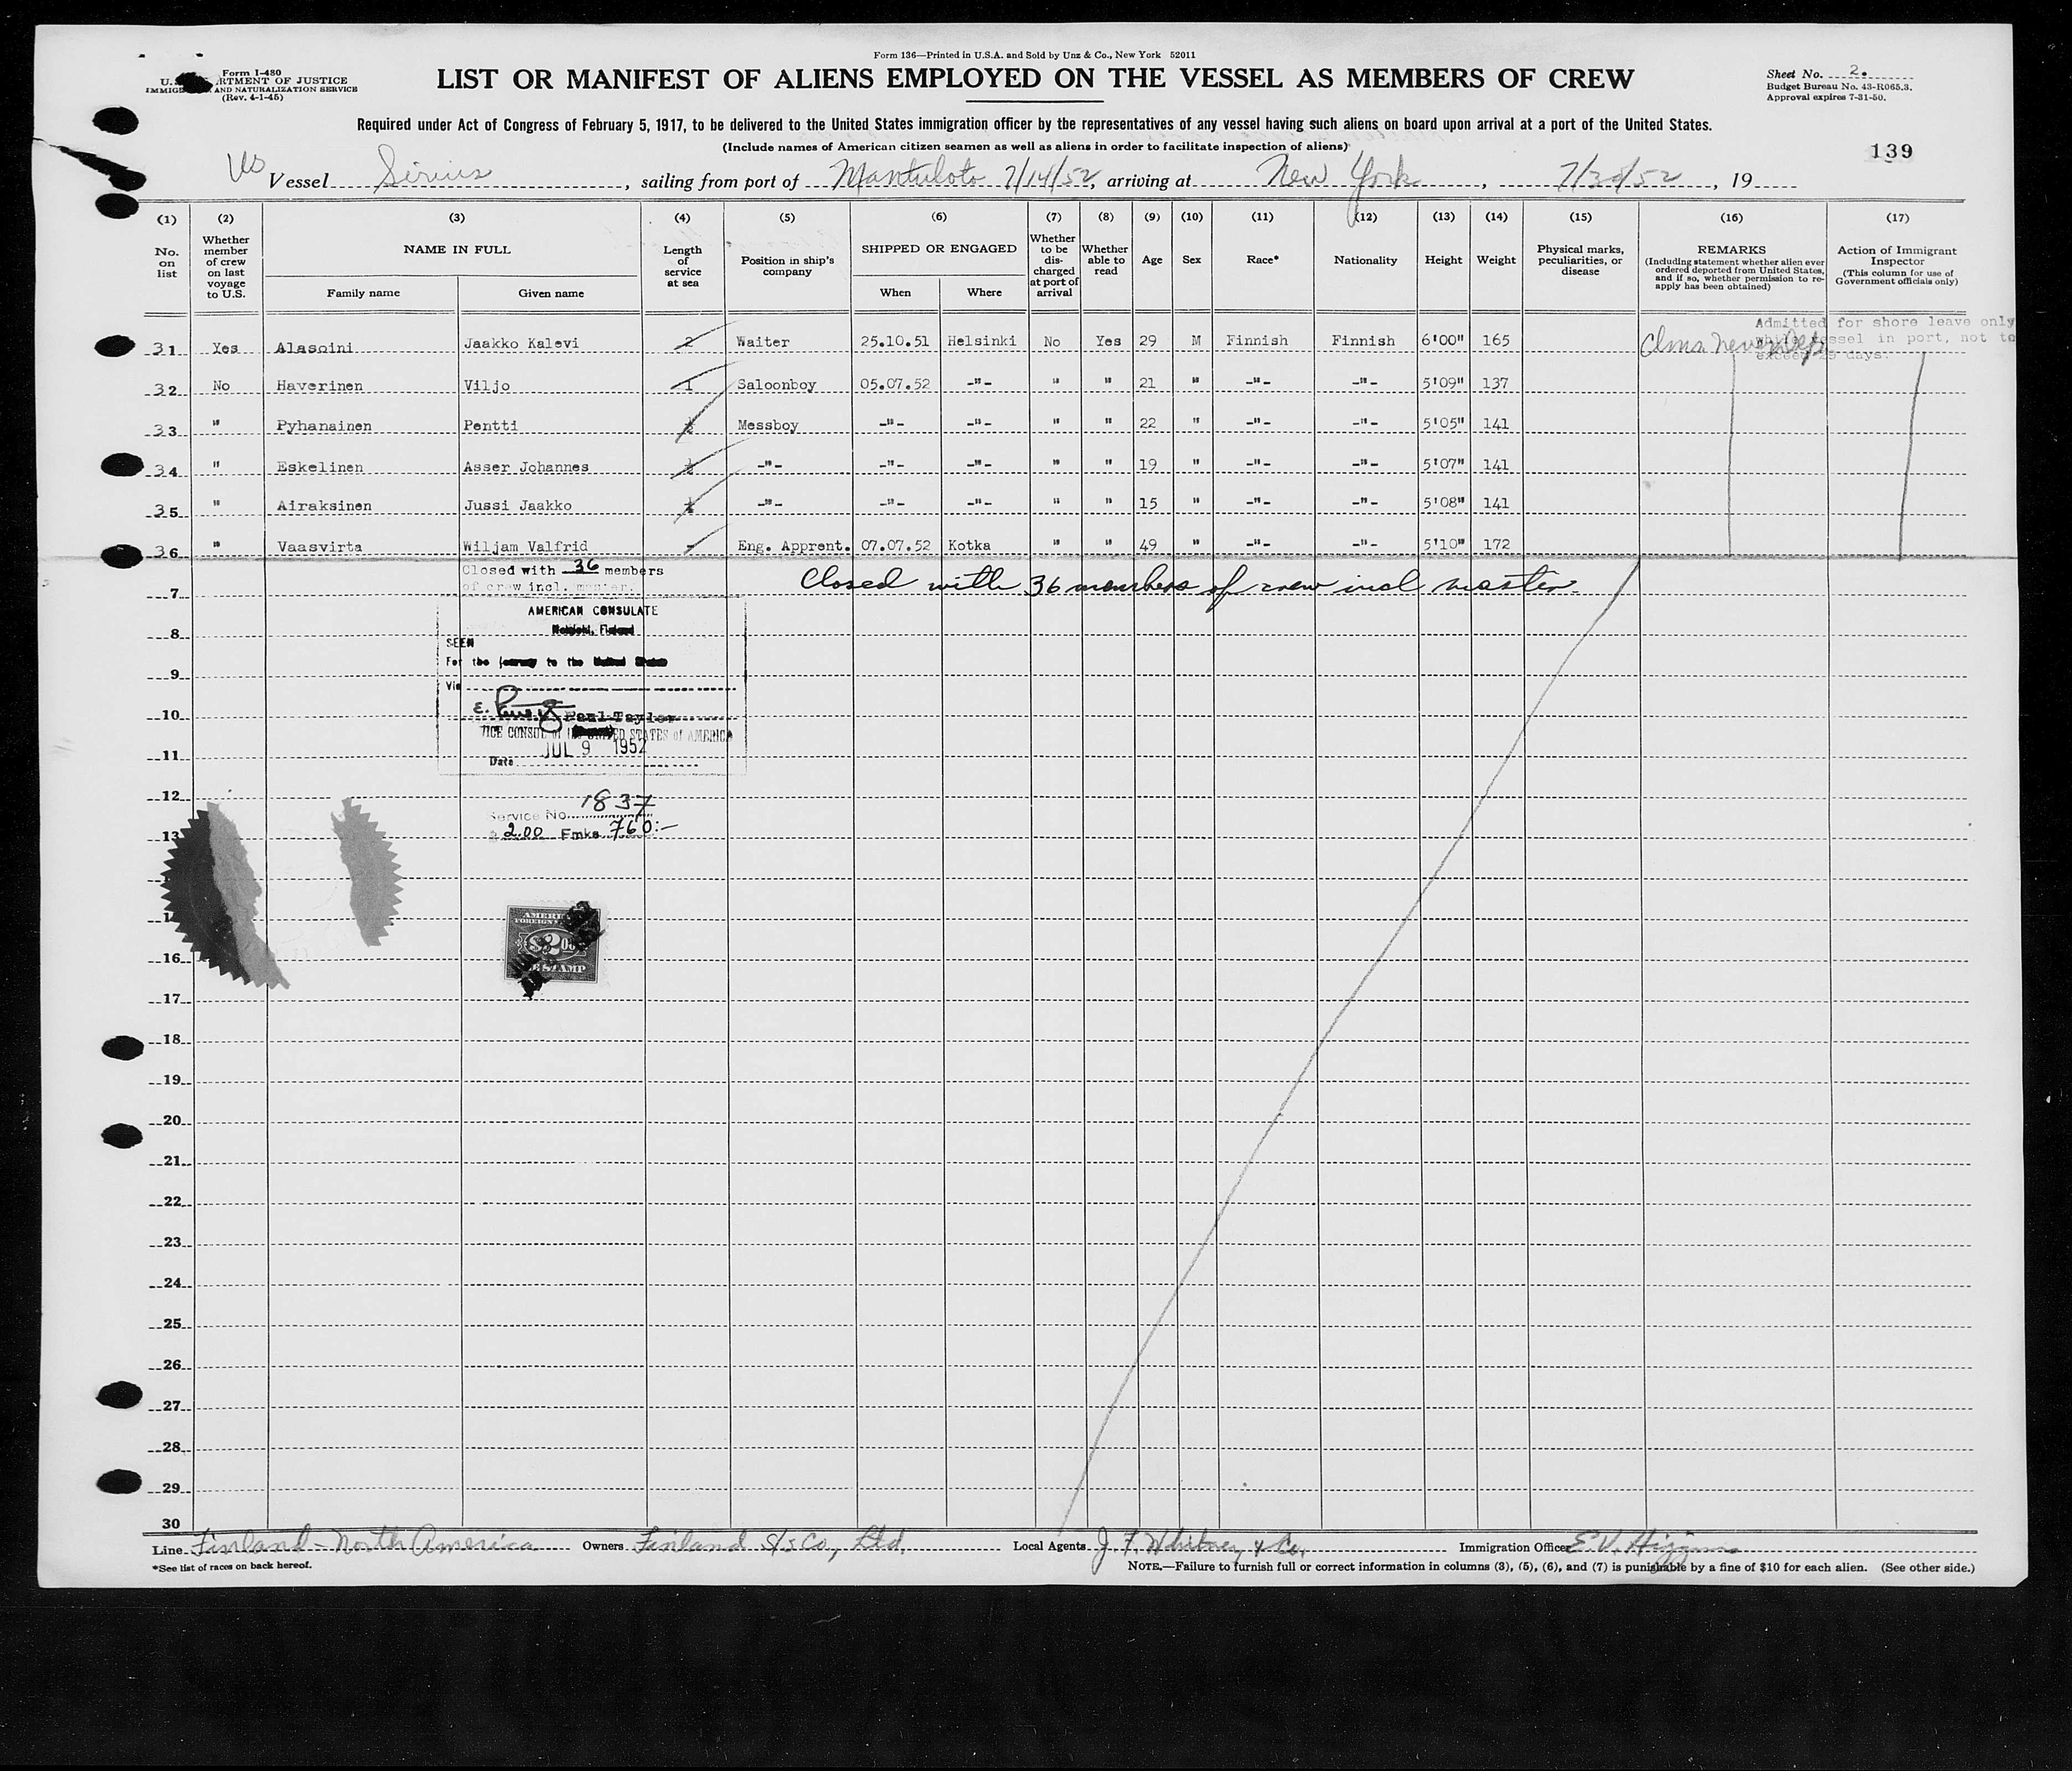 Form 136—Printed in U.S.A. and Sold by Unz & Co., New York 52011
Form I-480
U. ARTMENT OF JUSTICE
IMMIG AND NATURALIZATION SERVICE
(Rev. 4-1-45)
LIST OR MANIFEST OF ALIENS EMPLOYED ON THE VESSEL AS MEMBERS OF CREW
Sheet No. 2.
Budget Bureau No. 43-R065.3.
Approval expires 7-31-50.
Required under Act of Congress of February 5, 1917, to be delivered to the United States immigration officer by the representatives of any vessel having such aliens on board upon arrival at a port of the United States.
(Include names of American citizen seamen as well as aliens in order to facilitate inspection of aliens)
139
Vessel Sirius, sailing from port of Mantuloto 7/14/52, arriving at New York, 7/30/52, 19
(1) (2) (3) (4) (5) (6) (7) (8) (9) (10) (11) (12) (13) (14) (15) (16) (17)
No. on list
Whether member of crew on last voyage to U.S.
NAME IN FULL
Family name
Given name
Length of service at sea
Position in ship's company
SHIPPED OR ENGAGED
When
Where
Whether to be discharged at port of arrival
Whether able to read
Age
Sex
Race*
Nationality
Height
Weight
Physical marks, peculiarities, or disease
REMARKS
(Including statement whether alien ever ordered deported from United States, and if so, whether permission to re-apply has been obtained)
Action of Immigrant Inspector
(This column for use of Government officials only)
Admitted for shore leave only
while vessel in port, not to
exceed 29 days.
31 Yes Alasoini Jaakko Kalevi 2 Waiter 25.10.51 Helsinki No Yes 29 M Finnish Finnish 6'00" 165
32 No Haverinen Viljo 1 Saloonboy 05.07.52 -"- " " 21 " -"- -"- 5'09" 137
33 " Pyhanainen Pentti Messboy -"- -"- " " 22 " -"- -"- 5'05" 141
34 " Eskelinen Asser Johannes -"- -"- -"- " " 19 " -"- -"- 5'07" 141
35 " Airaksinen Jussi Jaakko -"- -"- -"- " " 15 " -"- -"- 5'08" 141
36 " Vaasvirta Wiljam Valfrid - Eng. Apprent. 07.07.52 Kotka " " 49 " -"- -"- 5'10" 172
Closed with 36 members
of crew incl. master.
Closed with 36 members of crew incl master.
AMERICAN CONSULATE
Helsinki, Finland
SEEN
For the journey to the United States
Via
E. Paul Taylor
VICE CONSUL of the UNITED STATES of AMERICA
JUL 9 1952
Date
Service No. 1837
$ 2.00 Fmks 760:-
AMERI
FOREIGN
$2.00
STAMP
7
8
9
10
11
12
13
14
1
16
17
18
19
20
21
22
23
24
25
26
27
28
29
30
Line Finland - North America Owners Finland S/S Co., Ltd. Local Agents J. F. Whitney & Co. Immigration Officer E. V.
*See list of races on back hereof.
NOTE.—Failure to furnish full or correct information in columns (3), (5), (6), and (7) is punishable by a fine of $10 for each alien. (See other side.)